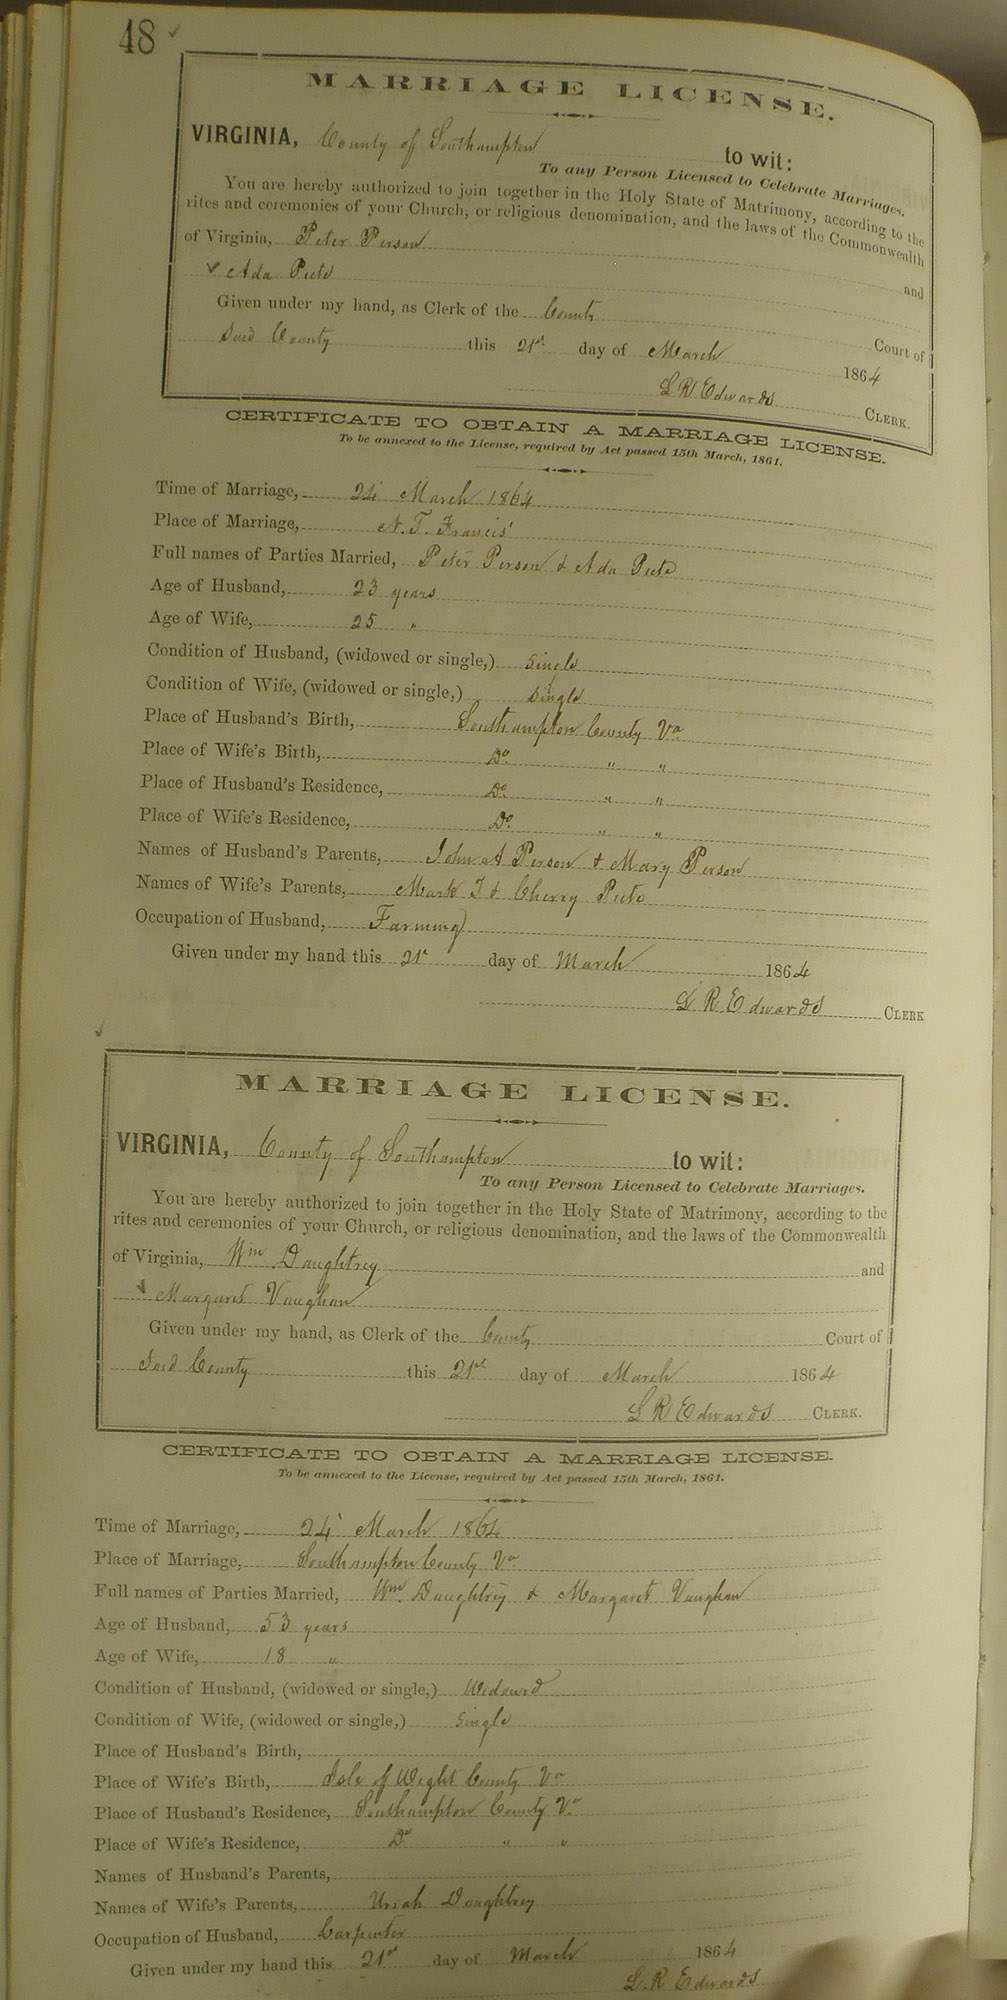 48
MARRIAGE LICENSE.
VIRGINIA, County of Southampton to wit:
To any Person Licensed to Celebrate Marriages.
You are hereby authorized to join together in the Holy State of Matrimony, according to the
rites and ceremonies of your Church, or religious denomination, and the laws of the Commonwealth
of Virginia, Peter Person and
Ada Peete
Given under my hand, as Clerk of the County Court of
Said County this 21st day of March 1864
L R Edwards CLERK.
CERTIFICATE TO OBTAIN A MARRIAGE LICENSE.
To be annexed to the License, required by Act passed 15th March, 1861.
Time of Marriage, 24 March 1864
Place of Marriage, N. T. Francis'
Full names of Parties Married, Peter Person & Ada Peete
Age of Husband, 23 years
Age of Wife, 25 "
Condition of Husband, (widowed or single,) Single
Condition of Wife, (widowed or single,) Single
Place of Husband's Birth, Southampton County Va
Place of Wife's Birth, Do " "
Place of Husband's Residence, Do " "
Place of Wife's Residence, Do " "
Names of Husband's Parents, John A Person & Mary Person
Names of Wife's Parents, Mark T & Cherry Peete
Occupation of Husband, Farming
Given under my hand this 21st day of March 1864
L R Edwards CLERK
MARRIAGE LICENSE.
VIRGINIA, County of Southampton to wit:
To any Person Licensed to Celebrate Marriages.
You are hereby authorized to join together in the Holy State of Matrimony, according to the
rites and ceremonies of your Church, or religious denomination, and the laws of the Commonwealth
of Virginia, Wm Daughtrey and
Margaret Vaughan
Given under my hand, as Clerk of the County Court of
Said County this 21st day of March 1864
L R Edwards CLERK.
CERTIFICATE TO OBTAIN A MARRIAGE LICENSE.
To be annexed to the License, required by Act passed 15th March, 1861.
Time of Marriage, 24 March 1864
Place of Marriage, Southampton County Va
Full names of Parties Married, Wm Daughtrey & Margaret Vaughan
Age of Husband, 53 years
Age of Wife, 18 "
Condition of Husband, (widowed or single,) Widowed
Condition of Wife, (widowed or single,) Single
Place of Husband's Birth,
Place of Wife's Birth, Isle of Wight County Va
Place of Husband's Residence, Southampton County Va
Place of Wife's Residence, Do " "
Names of Husband's Parents,
Names of Wife's Parents, Uriah Daughtrey
Occupation of Husband, Carpenter
Given under my hand this 21st day of March 1864
L. R Edwards